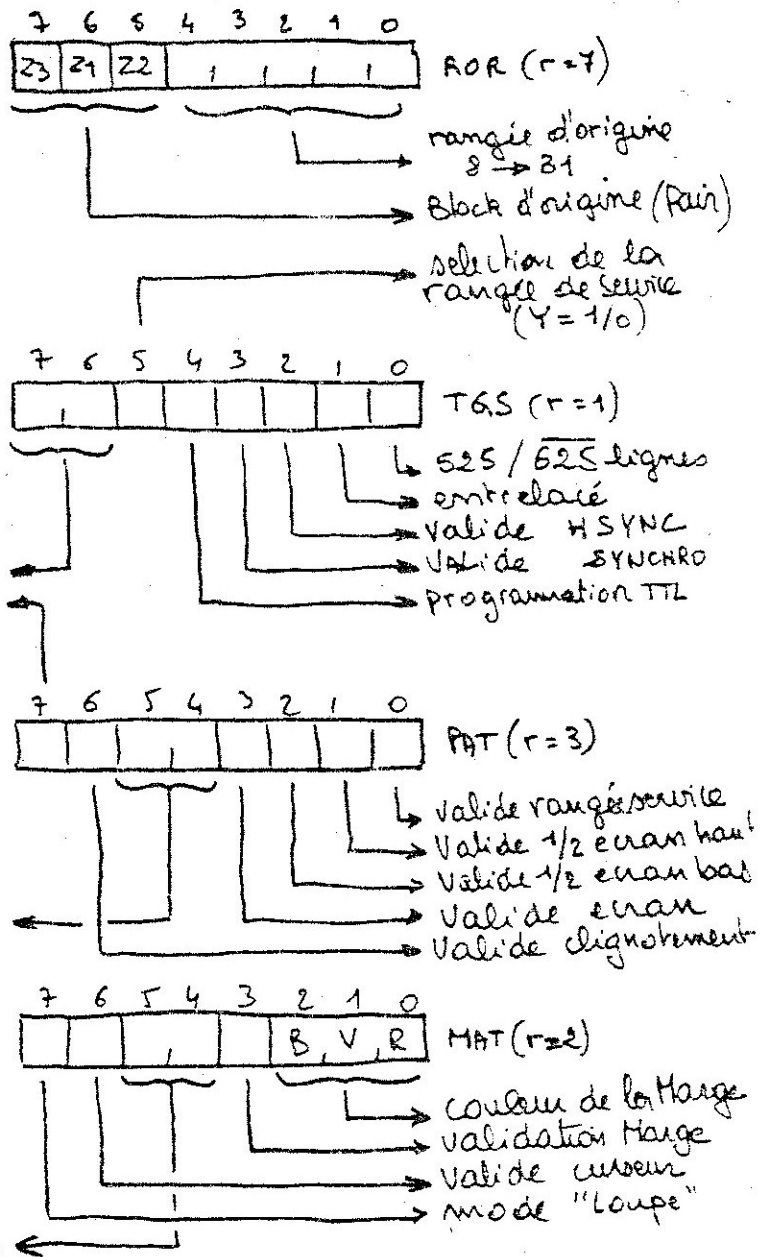 7 6 5 4 3 2 1 0
Z3 Z1 Z2 ROR (r=7)
rangée d'origine
8 → 31
Block d'origine (Pair)
selection de la
rangée de service
(Y = 1/0)
7 6 5 4 3 2 1 0
TGS (r=1)
525 / 625 lignes
entrelacé
valide HSYNC
VALide SYNCHRO
programmation TTL
7 6 5 4 3 2 1 0
PAT (r=3)
valide rangée service
Valide 1/2 ecran haut
Valide 1/2 ecran bas
Valide ecran
Valide clignotement
7 6 5 4 3 2 1 0
B V R MAT (r=2)
couleur de la Marge
validation Marge
valide curseur
mode "Loupe"